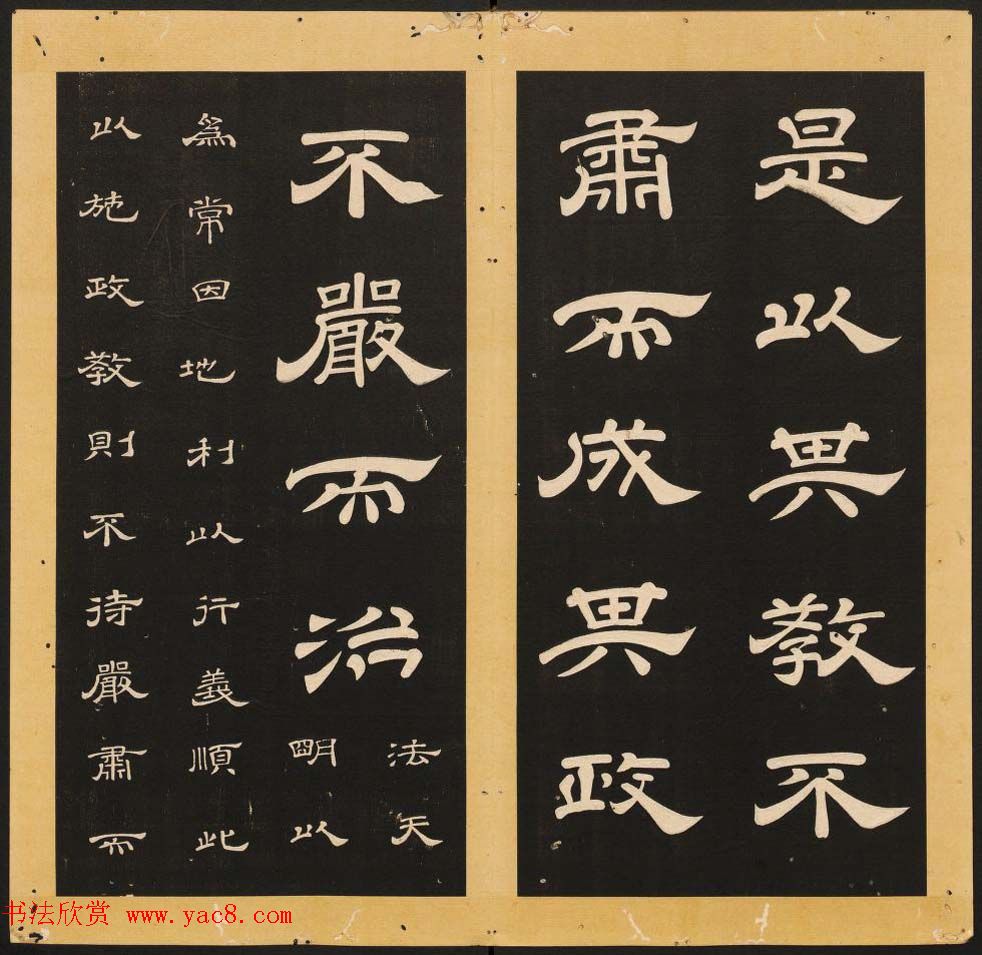 是以其教不
肅而成其政
不嚴而治
法天
明以
為常因地利以行義順此
以施政教則不待嚴肅而
书法欣赏 www.yac8.com